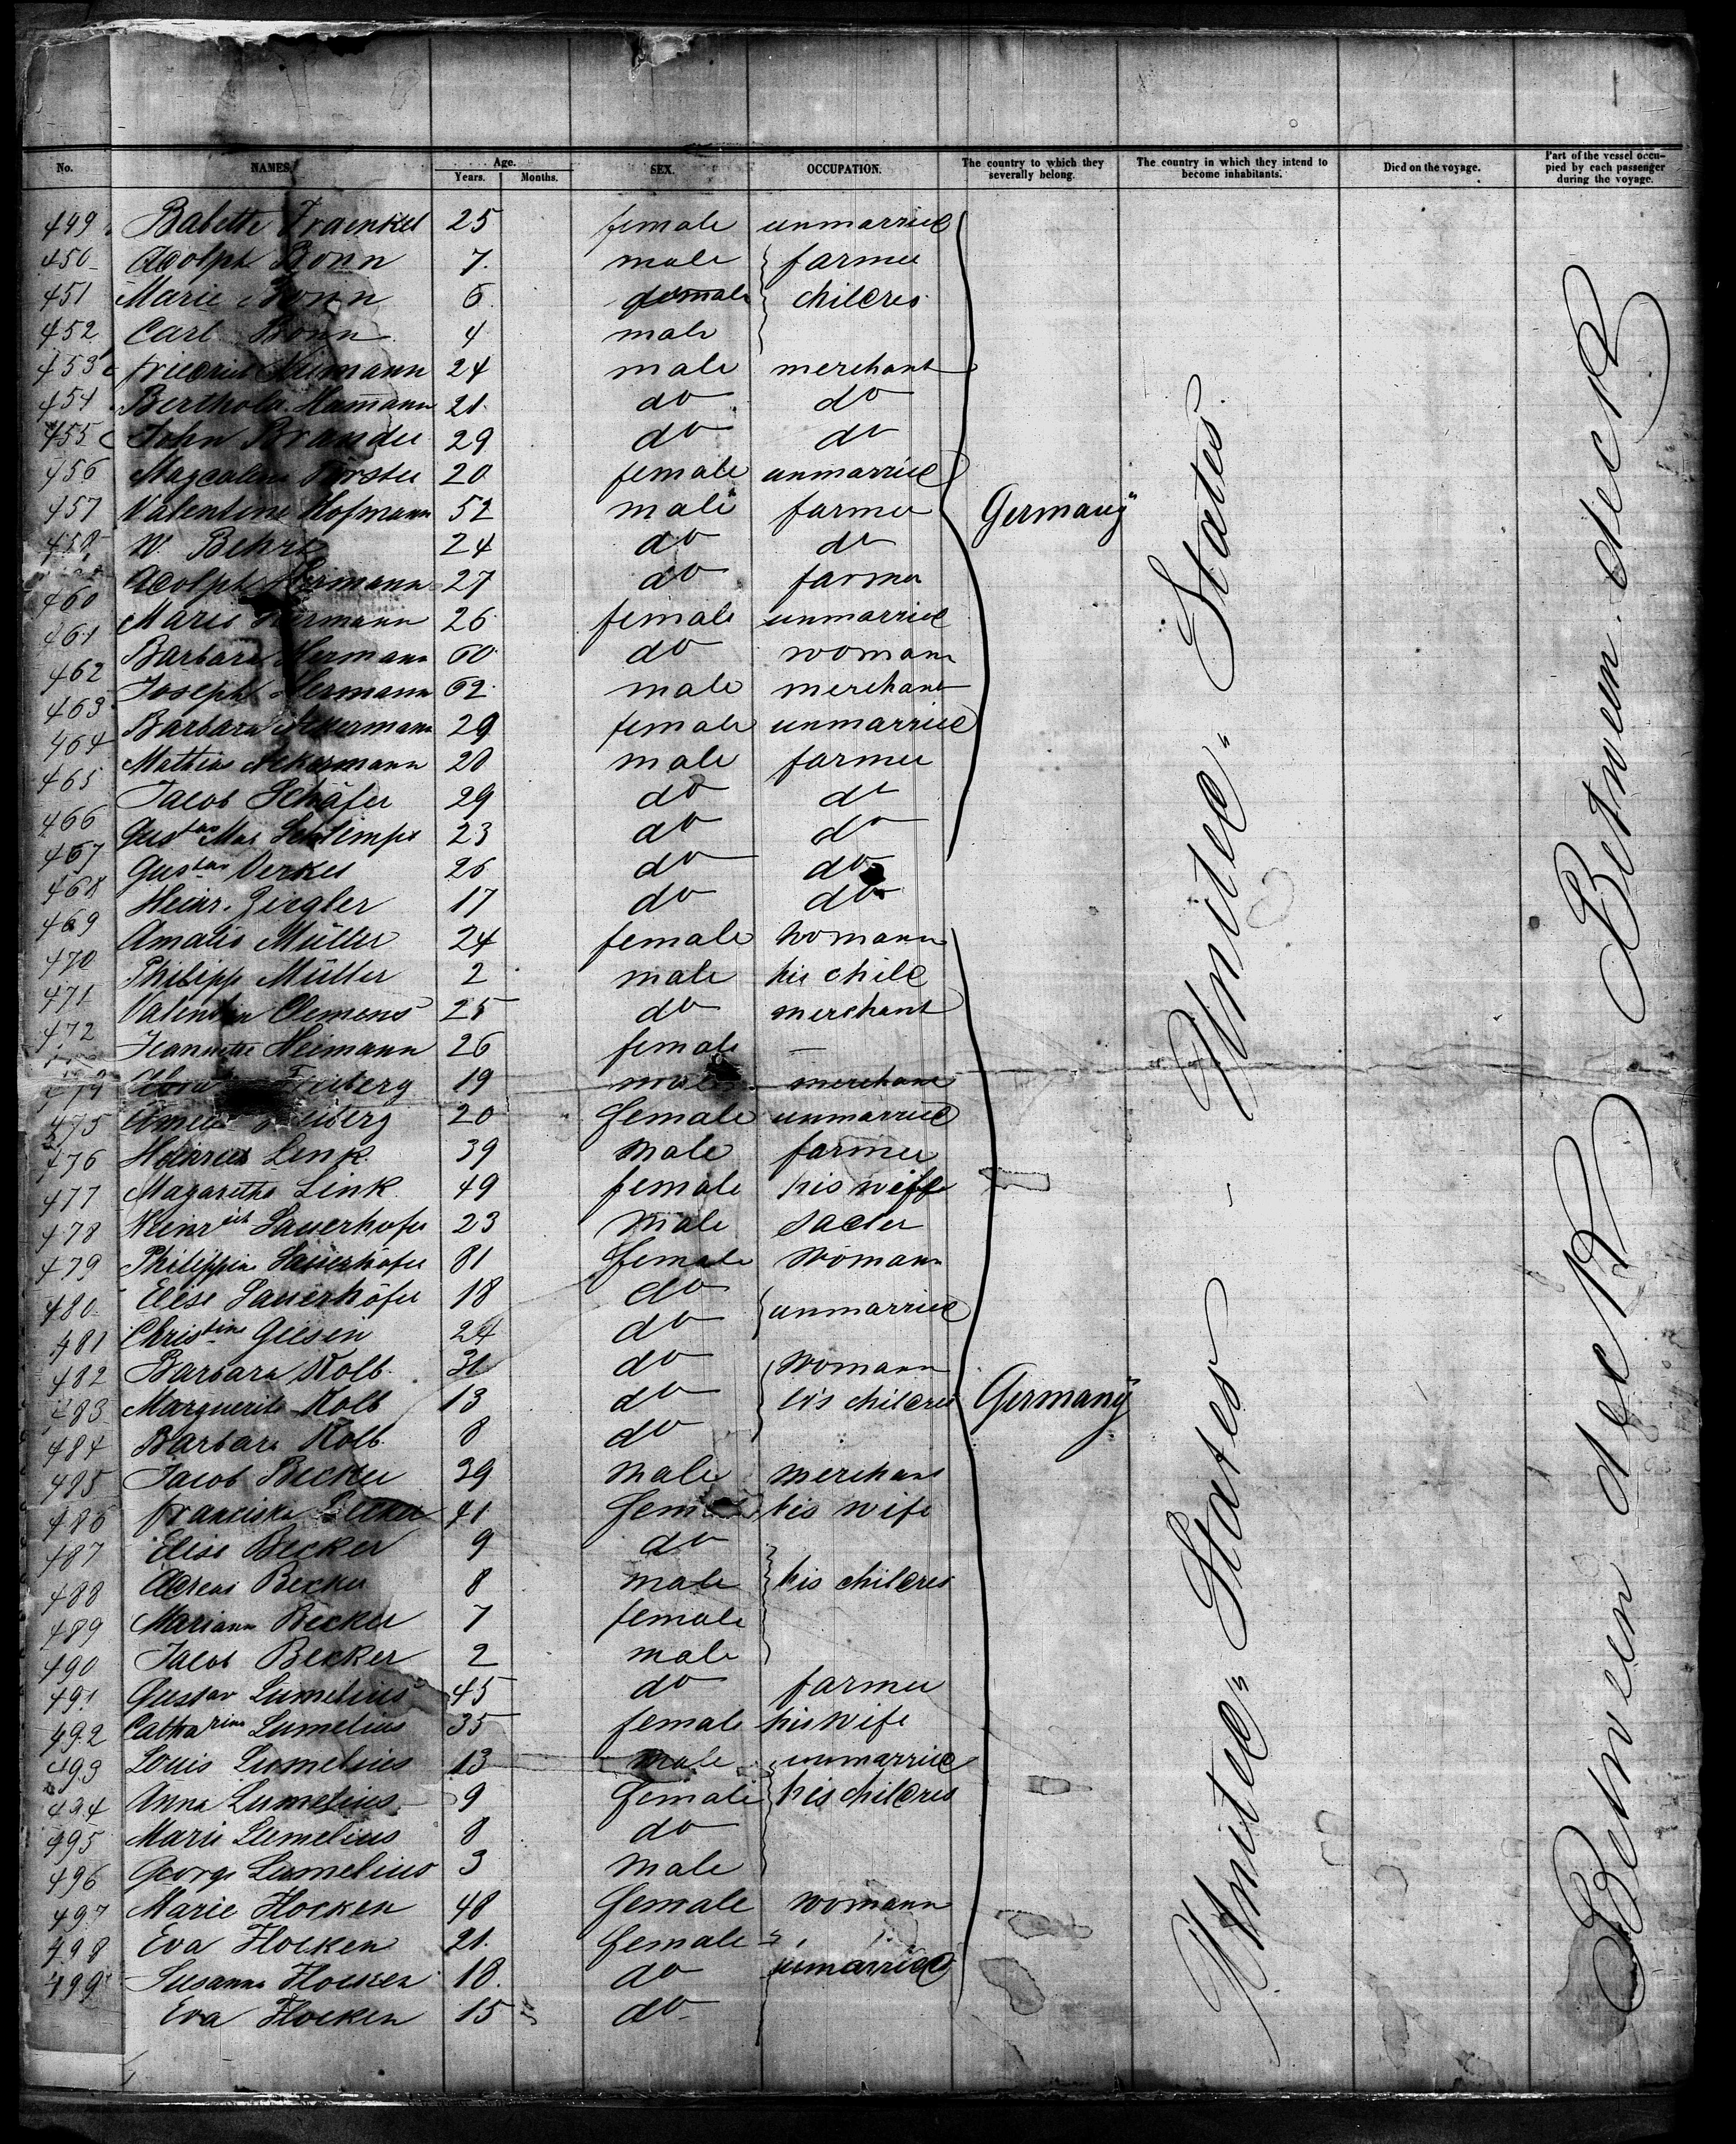 No. NAMES. Age. Years. Months. SEX. OCCUPATION. The country to which they severally belong. The country in which they intend to become inhabitants. Died on the voyage. Part of the vessel occupied by each passenger during the voyage.
449 Babette Fraenkel 25 female unmarried
450 Adolph Bonn 7 male farmer
451 Marie Bonn 6 female children
452 Carl Bonn 4 male
453 Friedrich Neumann 24 male merchant
454 Berthold Hamann 21 do do
455 John Brander 29 do do
456 Magdalena Förster 20 female unmarried
457 Valentine Hofmann 52 male farmer Germany
458 W. Behre 24 do do
Adolph Hermann 27 do farmer
460 Marie Hermann 26 female unmarried
461 Barbara Hermann 60 do womann
462 Joseph Hermann 62 male merchant
463 Barbara Akermann 29 female unmarried
464 Mathias Akermann 20 male farmer
465 Jacob Schäfer 29 do do
466 Gustav Max 23 do do
467 Gustav 26 do do
468 Heinr. Ziegler 17 do do
469 Amalie Müller 24 female womann
470 Philipp Müller 2 male his child
471 Valentin Clemens 25 do merchant
472 Jeannette Heimann 26 female —
Freiberg 19 male merchant
475 Freiberg 20 female unmarried
476 Heinrich Link 39 male farmer
477 Magarethe Link 49 female his wiffe
478 Heinrich Sauerhofer 23 male sadler
479 Philippine Sauerhöfer 81 female womann
480 Elise Sauerhöfer 18 do unmarried
481 Christine Giesen 24 do
482 Barbara Kolb 31 do womann
483 Marguerite Kolb 13 do his children Germany
484 Barbara Kolb 8 do
485 Jacob Becker 39 male merchant
486 Franciska Becker 41 female his wife
487 Elise Becker 9 do
488 Andreas Becker 8 male his children
489 Mariann Becker 7 female
490 Jacob Becker 2 male
491 Gustav Lumelius 45 do farmer
492 Catharina Lumelius 35 female his wife
493 Louis Lumelius 13 male unmarried
494 Anna Lumelius 9 female his children
495 Marie Lumelius 8 do
496 George Lumelius 3 male
497 Marie Flocken 48 female womann
498 Eva Flocken 21 female
499 Susanna Flocken 18 do unmarried
Eva Flocken 15 do
United States
United States
Between deck
Between deck